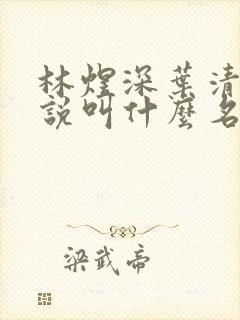 林煜深葉清
說叫什麼名
梁武帝